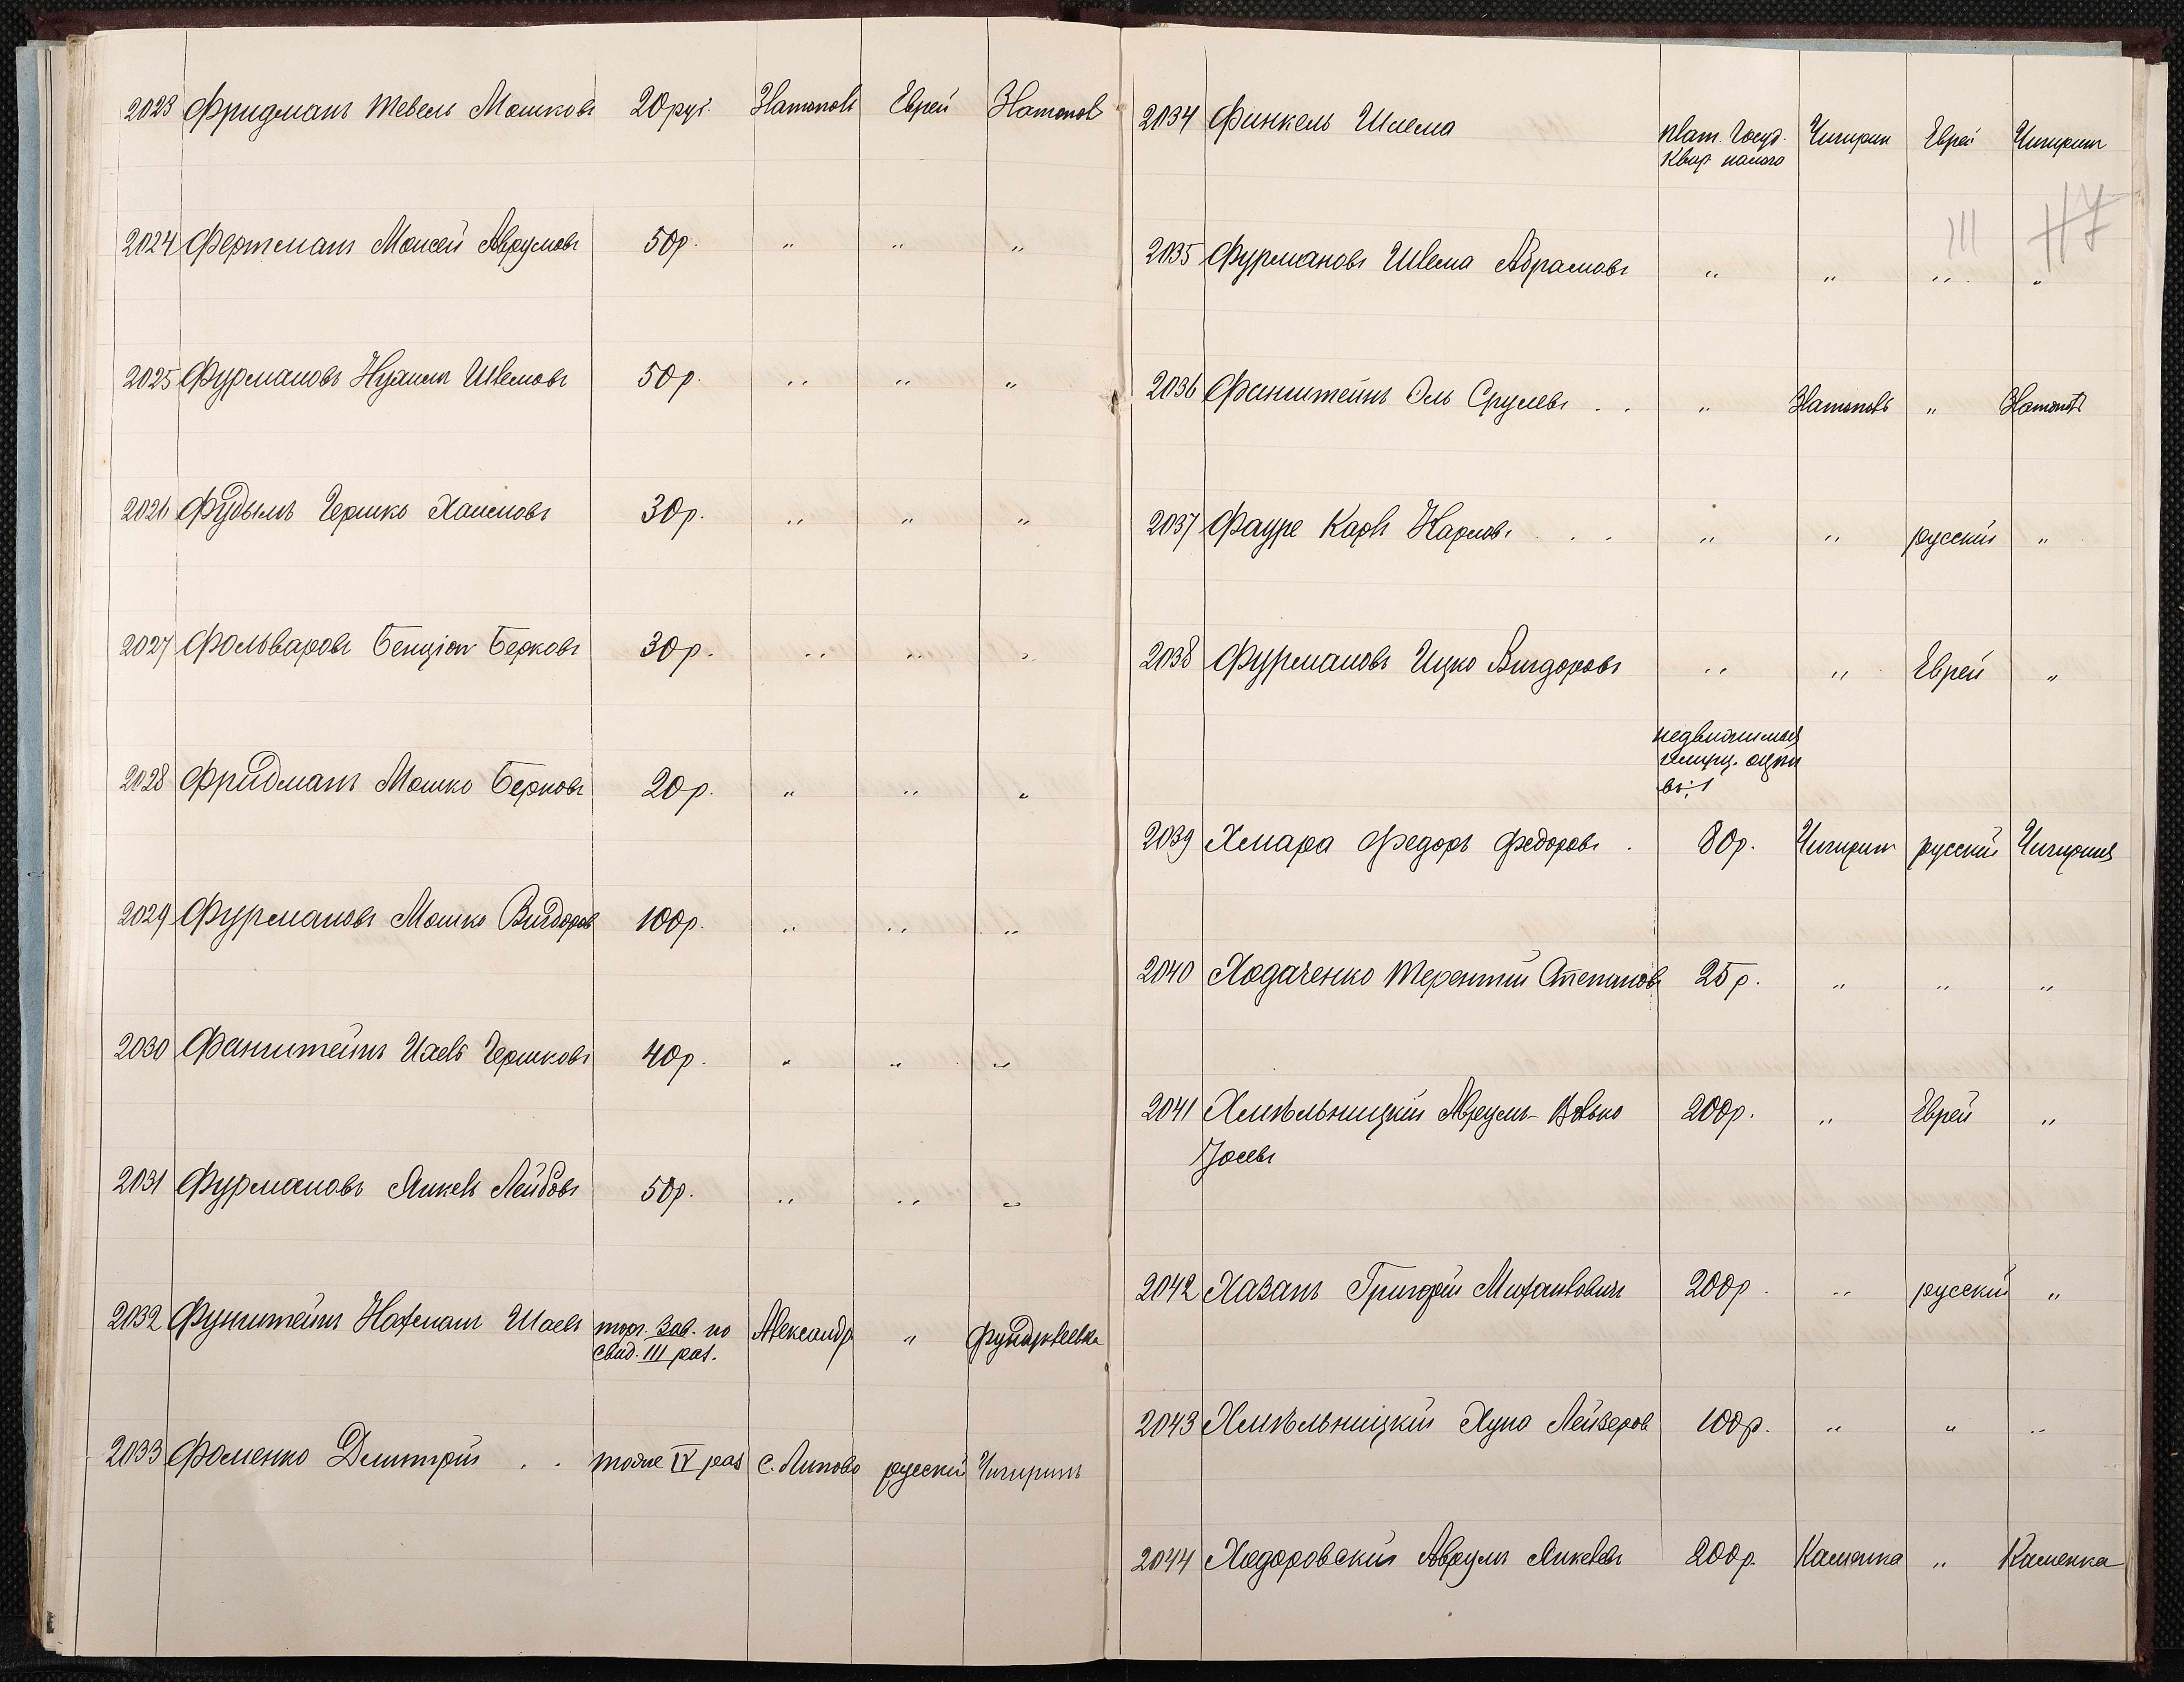 2023 Фридманъ Тевель Мошковъ 20 руб. Златополь Еврей Златополь
2024 Фертманъ Моисей Аврумовъ 50р. " " "
2025 Фурмановъ Нухимъ Шлемовъ 50р. " " "
2026 Фудымъ Гершко Хаимовъ 30р. " " "
2027 Фольваровъ Бенціон Берковъ 30р. " " "
2028 Фридманъ Мошко Берковъ 20р. " " "
2029 Фурмановъ Мошко Вигдоров 100р. " " "
2030 Фанштейнъ Ихель Гершковъ 40р. " " "
2031 Фурмановъ Янкель Лейбовъ 50р. " " "
2032 Фунштейнъ Нахманъ Шаевъ торг. зав. по Александр " Фундуклеевка
свид. III раз.
2033 Фоменко Дмитрій . . тоже IV раз с. Липово русскій Чигиринъ
2034 Финкель Шлема плат. Госуд. Чигирин Еврей Чигирин
Квар налога
III 47
2035 Фурмановъ Шлема Абрамовъ " " " "
2036 Фанштейнъ Эль Срулевъ . . " Златополь " Златополь
2037 Фауре Карлъ Карловъ . . " " русскій "
2038 Фурмановъ Ицко Вигдоровъ " " Еврей "
недвижимая
имущ. оцѣн
въ:
2039 Хмара Федоръ Федоровъ . 80р. Чигирин русскій Чигирин
2040 Ходаченко Терентій Степановъ 25р. " " "
2041 Хмѣльницкій Аврумъ-Волько 200р. " Еврей "
Іосевъ
2042 Хазанъ Григорій Михайловичъ 200р. " русскій "
2043 Хмѣльницкій Хуна Лейзеров 100р. " " "
2044 Ходоровскій Аврумъ Янкелевъ 200р. Каменка " Каменка